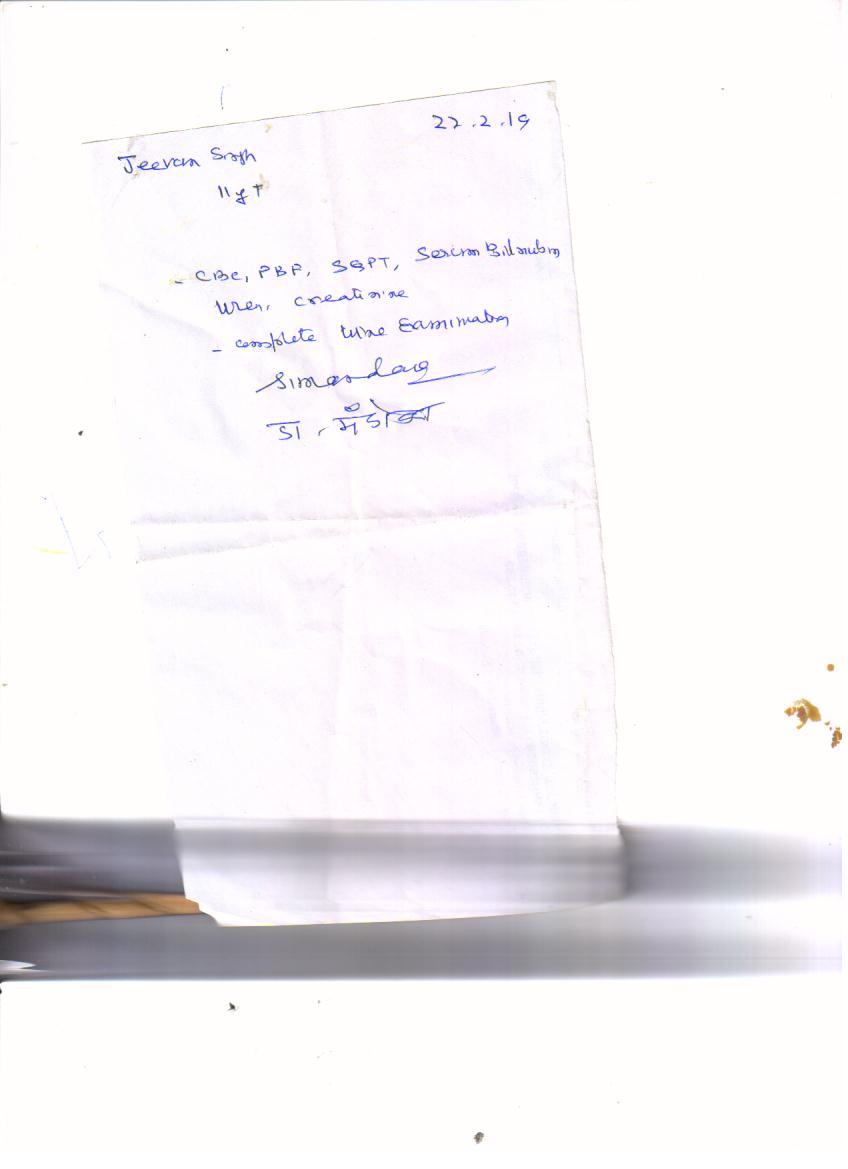 22.2.19
Jeevan Singh
11 yr
- CBC, PBF, SGPT, Serum Bilirubin
Urea, creatinine
- complete urine Examination
डा.